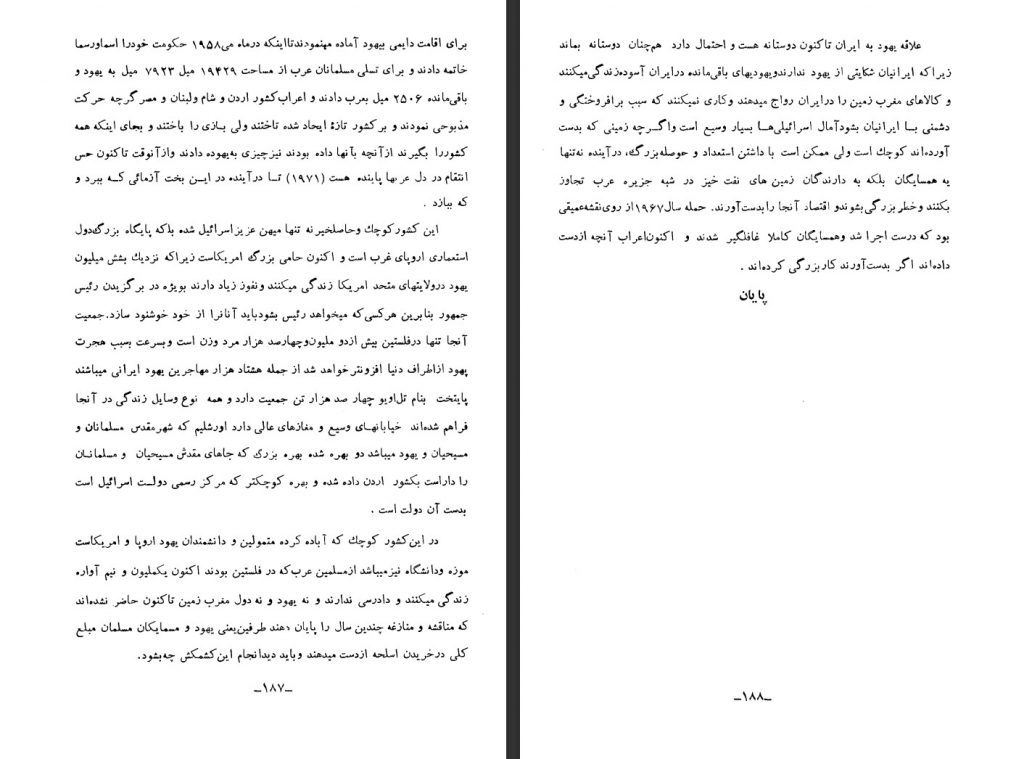 برای اقامت دایمی بیهود آماده مینمودندتااینکه درماه می۱۹۵۸ حکومت خودرا اسماورسما
خاتمه دادند و برای تسلی مسلمانان عرب از مساحت ۱۹۴۲۹ میل ۷۹۲۳ میل به یهود و
باقی‌مانده ۲۵۰۶ میل بعرب دادند و اعراب‌کشور اردن و شام ولبنان و مصر گرچه حرکت
مذبوحی نمودند و بر کشور تازهٔ ایجاد شده تاختند ولی بازی را باختند و بجای اینکه همه
کشوررا بگیرند ازآنچه بآنها داده بودند نیزچیزی به‌یهوده دادند وازآنوقت تاکنون حس
انتقام در دل عربها پابنده هست (۱۹۷۱) تا درآینده در این بخت آزمائی که ببرد و
که ببازد .
این کشورکوچك وحاصلخیر نه تنها میهن عزیز اسرائیل شده بلکه پایگاه بزرگ‌دول
استعماری اروپای غرب است و اکنون حامی بزرگ امریکاست زیراکه نزدیك بشش میلیون
یهود درولایتهای متحد امریکا زندگی میکنند ونفوز زیاد دارند بویژه در برگزیدن رئیس
جمهور بنابرین هرکسی‌که میخواهد رئیس بشودباید آنانرا از خود خوشنود سازد.جمعیت
آنجا تنها درفلستین بیش ازدو ملیون‌وچهارصد هزار مرد وزن است وبسرعت بسبب هجرت
یهود ازاطراف دنیا افزونترخواهد شد از جمله هشتاد هزار مهاجرین یهود ایرانی میباشند
پایتخت بنام تل‌اویو چهار صد هزار تن جمعیت دارد و همه نوع وسایل زندگی در آنجا
فراهم شده‌اند خیابانهای وسیع و مغازهای عالی دارد اورشلیم که شهرمقدس مسلمانان و
مسیحیان و یهود میباشد دو بهره شده بهره بزرگ که جاهای مقدش مسیحیان و مسلمانان
را داراست بکشور اردن داده شده و بهره کوچکتر که مرکز رسمی دولت اسرائیل است
بدست آن دولت است .
در این‌کشور کوچك که آباده کرده متمولین و دانشمندان یهود اروپا و امریکاست
موزه ودانشگاه نیزمیباشد ازمسلمین عرب‌که در فلستین بودند اکنون یکملیون و نیم آواره
زندگی میکنند و دادرسی ندارند و نه یهود و نه دول مغرب زمین تاکنون حاضر نشده‌اند
که مناقشه و منازغه چندین سال را پایان دهند طرفین‌یعنی یهود و مسایکان مسلمان مبلغ
کلی درخریدن اسلحه ازدست میدهند وباید دیدانجام این‌کشمکش چه‌بشود.
ـ۱۸۷ـ
علاقه یهود به ایران تاکنون دوستانه هست و احتمال دارد هم‌چنان دوستانه بماند
زیراکه ایرانیان شکایتی از یهود ندارندویهودیهای باقی‌مانده درایران آسوده‌زندگی‌میکنند
و کالاهای مغرب زمین را درایران رواج میدهند وکاری نمیکنند که سبب برافروختگی و
دشمنی با ایرانیان بشودآمال اسرائیلی‌ها بسیار وسیع است واگرچه زمینی که بدست
آورده‌اند کوچك است ولی ممکن است با داشتن استعداد و حوصله‌بزرگ، درآینده نه‌تنها
به همسایگان بلکه به دارندگان زمین های نفت خیز در شبه جزیره عرب تجاوز
بکنند وخطر بزرگی بشوندو اقتصاد آنجا را بدست‌آورند. حمله سال۱۹۶۷از روی‌نقشه‌عمیقی
بود که درست اجرا شد وهمسایگان کاملا غافلگیر شدند و اکنون‌اعراب آنچه ازدست
داده‌اند اگر بدست‌آورند کاربزرگی کرده‌اند .
پایان
ـ۱۸۸ـ